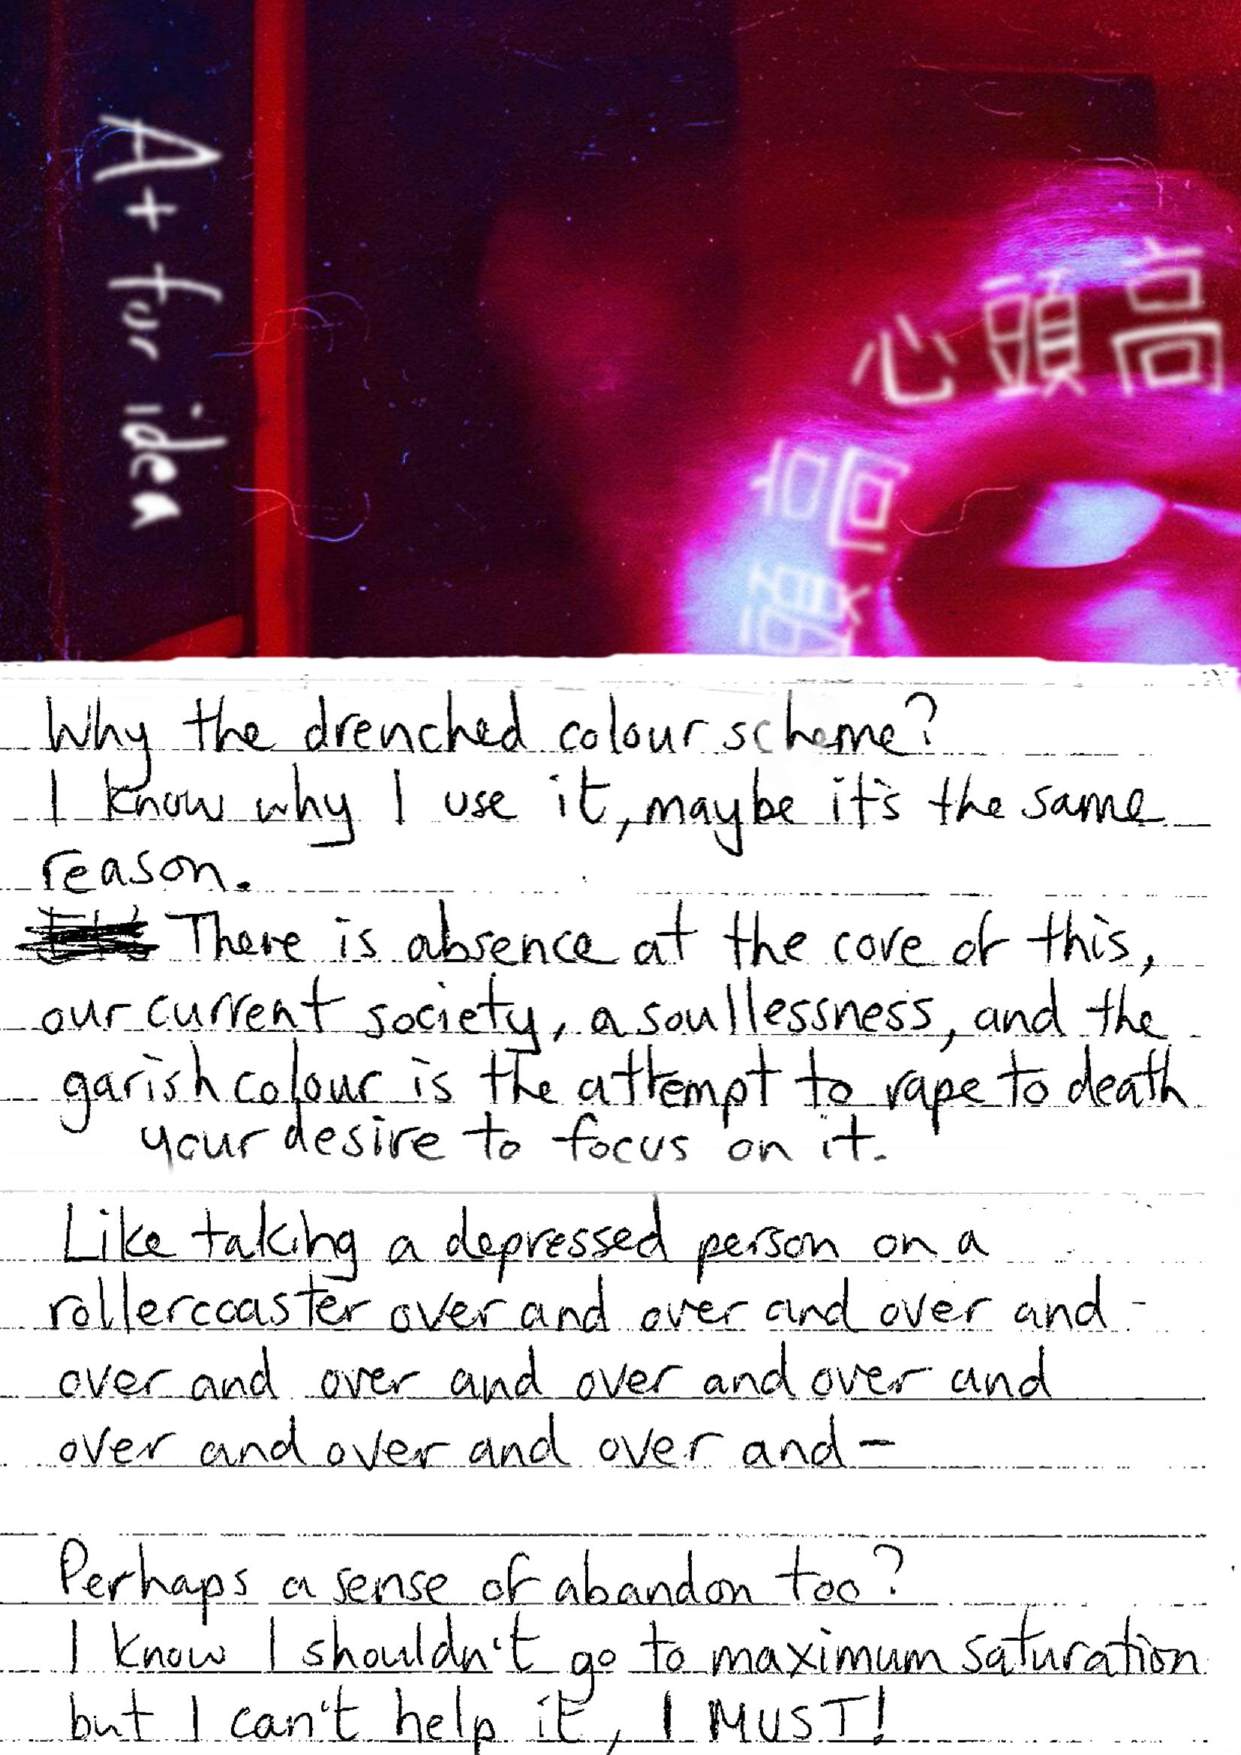 A+ for idea
心頭高
高頭
Why the drenched colour scheme?
I know why I use it, maybe it's the same
reason.
There is absence at the core of this,
our current society, a soullessness, and the
garish colour is the attempt to rape to death
your desire to focus on it.
Like taking a depressed person on a
rollercoaster over and over and over and -
over and over and over and over and
over and over and over and -
Perhaps a sense of abandon too?
I know I shouldn't go to maximum saturation
but I can't help it, I MUST!